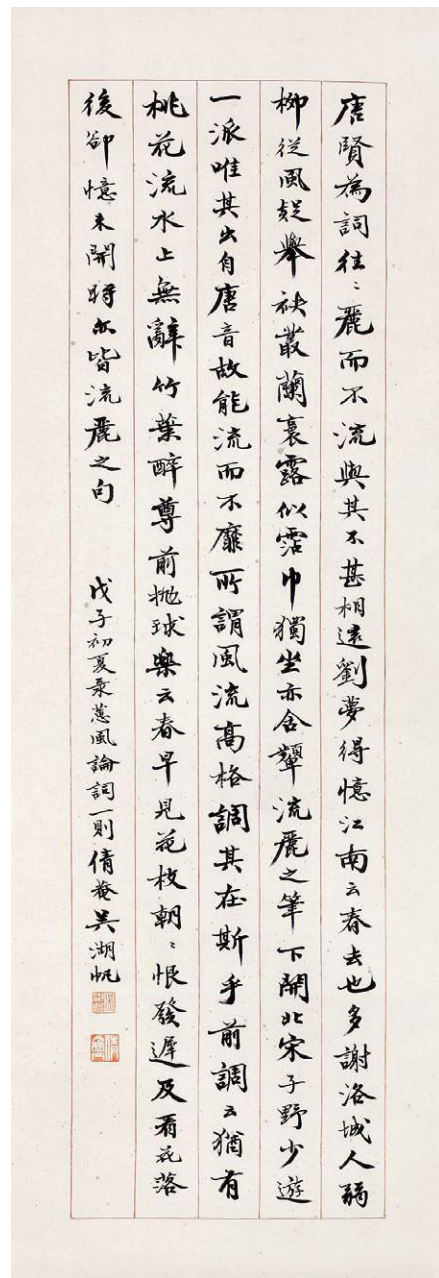 唐賢為詞往〻麗而不流與其不甚相遠劉夢得憶江南云春去也多謝洛城人弱
柳從風疑舉袂叢蘭裛露似霑巾獨坐亦含顰流麗之筆下開北宋子野少遊
一派唯其出自唐音故能流而不靡所謂風流高格調其在斯乎前調云猶有
桃花流水上無辭竹葉醉尊前拋球樂云春早見花枝朝〻恨發遲及看花落
後卻憶未開時亦皆流麗之句
戊子初夏彔蕙風論詞一則倩菴吳湖帆